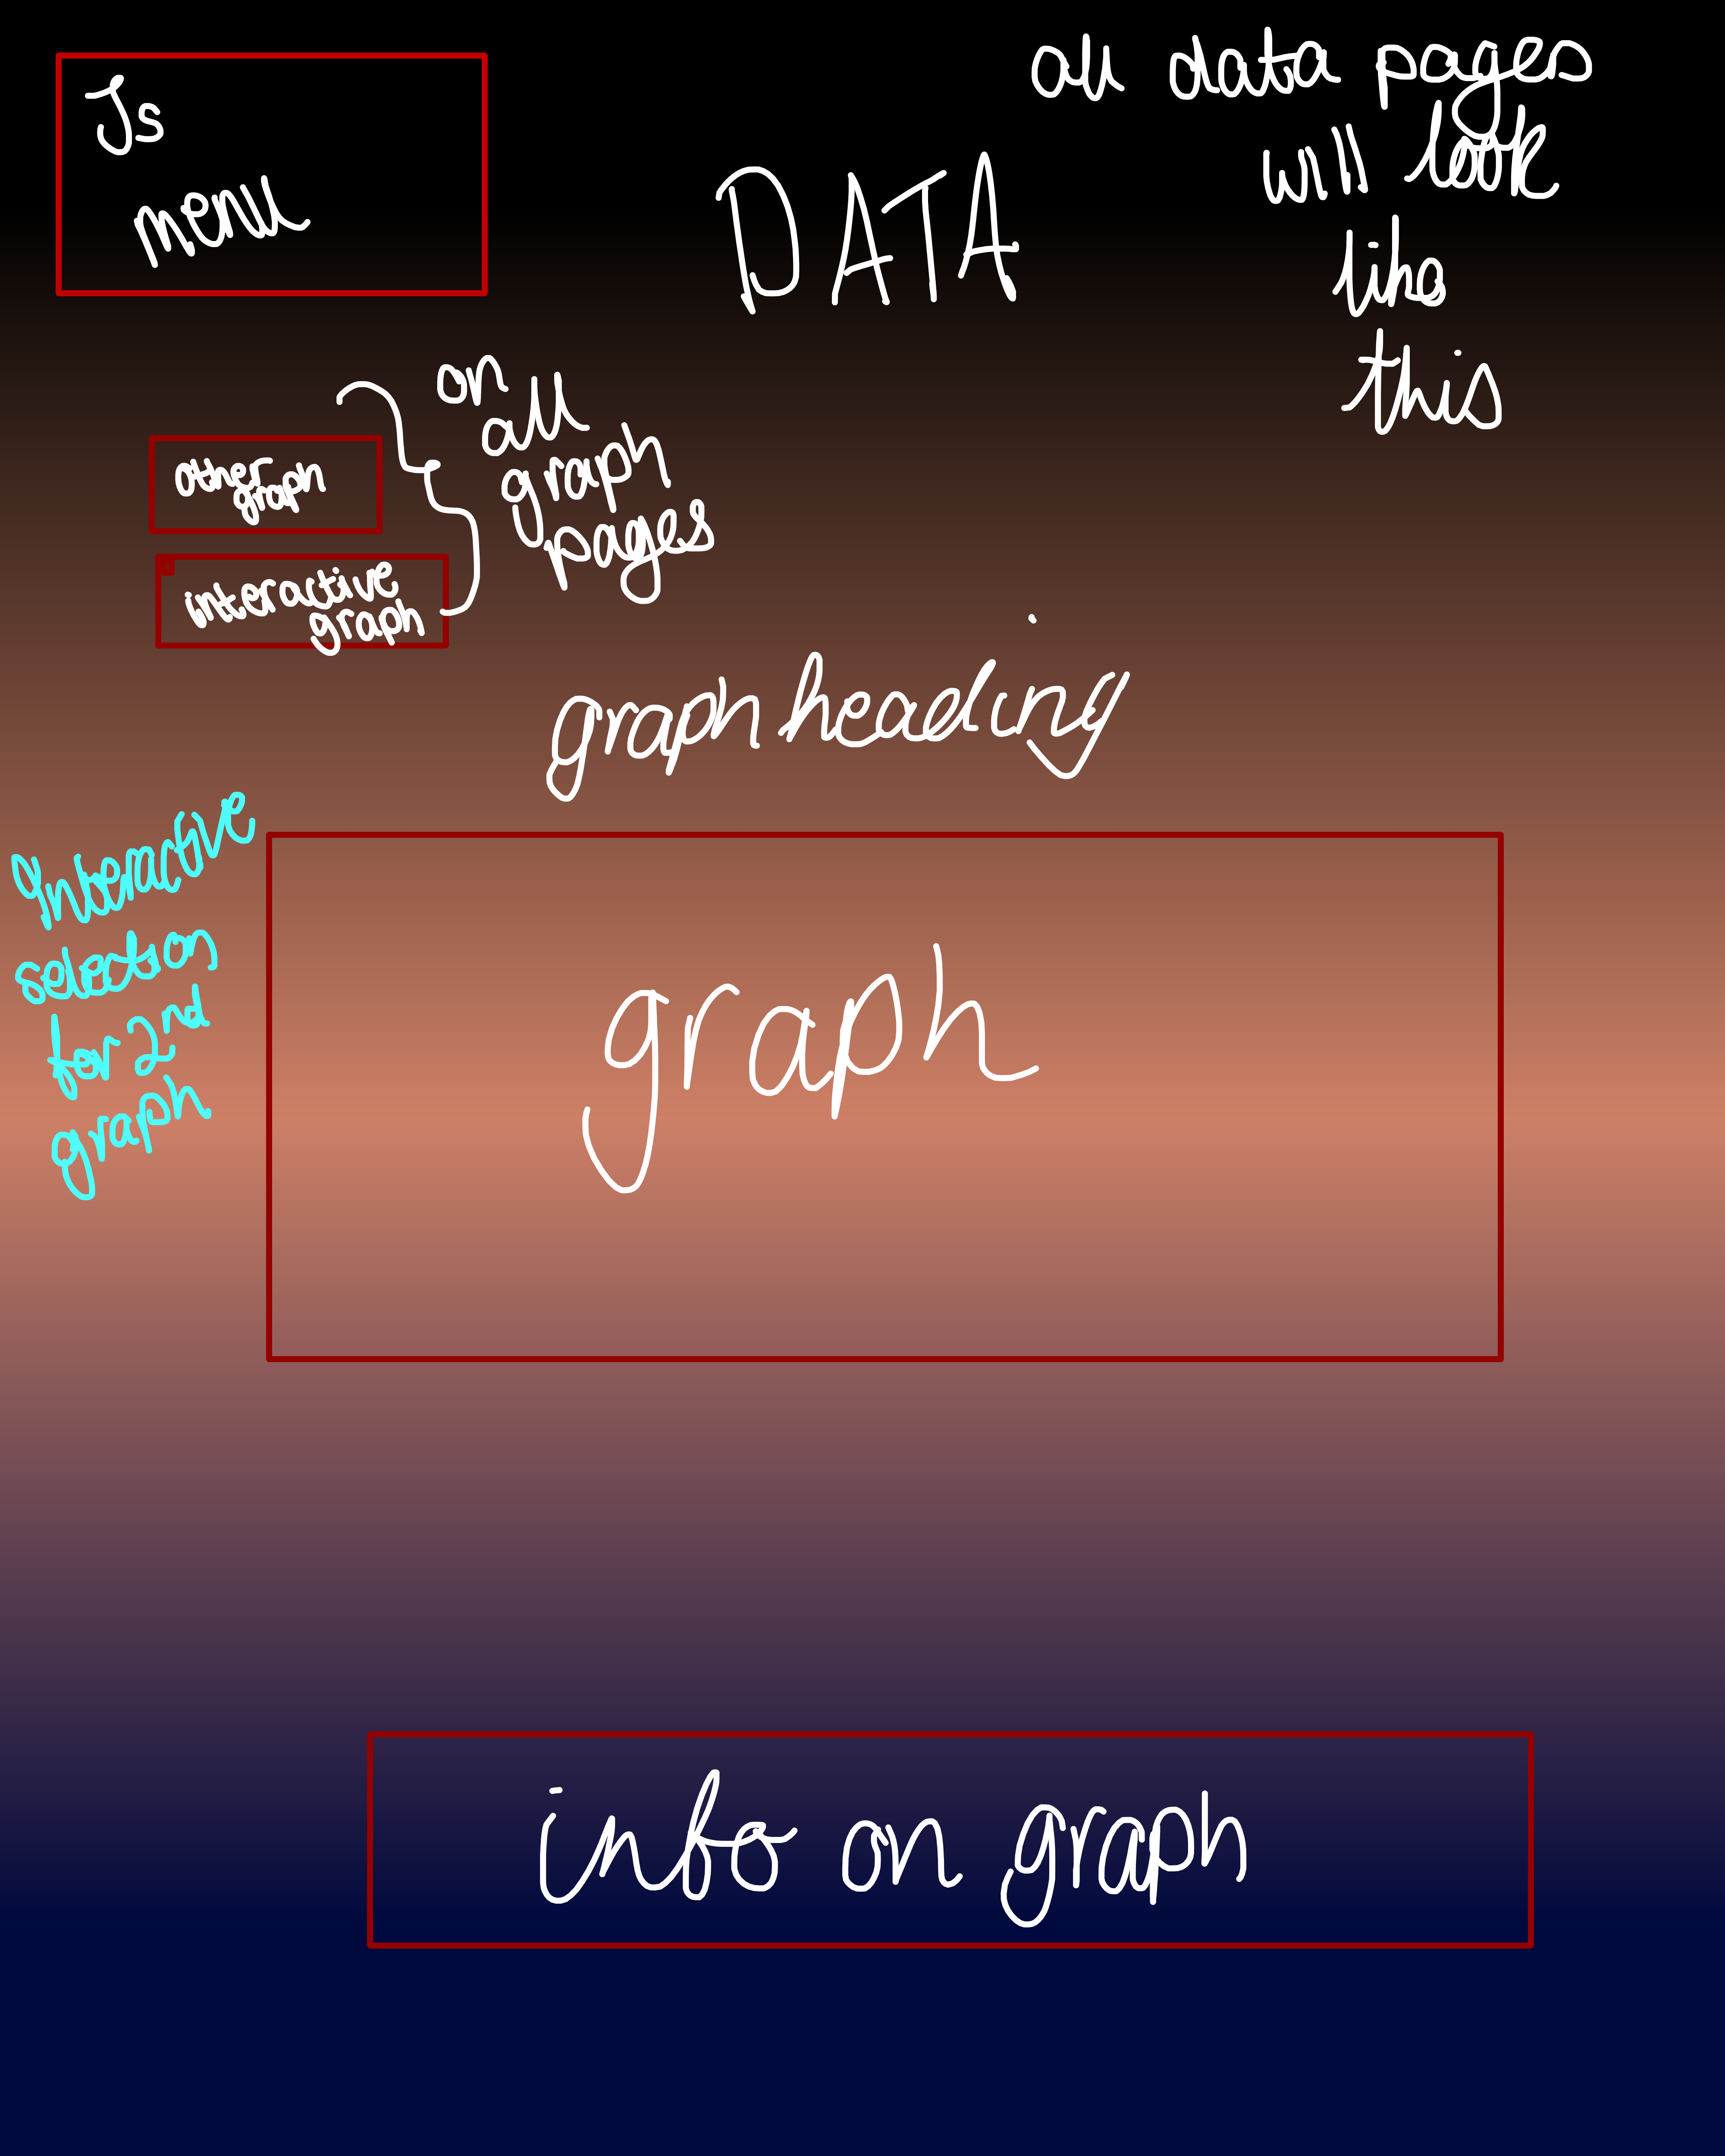 Js
menu
DATA
all data pages
will look
like
this
on
all
graph
pages
other
graph
interactive
graph
graph heading
Interactive
selection
for 2nd
graph
graph
info on graph